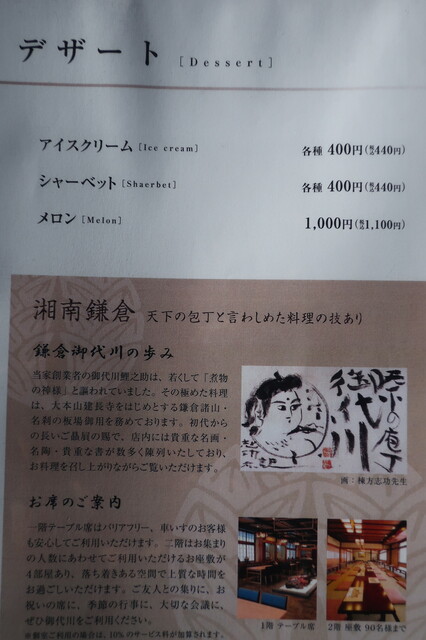 デザート [Dessert]
アイスクリーム [Ice cream] 各種 400円(税込440円)
シャーベット [Shaerbet] 各種 400円(税込440円)
メロン [Melon] 1,000円(税込1,100円)
湘南鎌倉 天下の包丁と言わしめた料理の技あり
鎌倉御代川の歩み
当家創業者の御代川鯉之助は、若くして「煮物
の神様」と謳われていました。その極めた料理
は、大本山建長寺をはじめとする鎌倉諸山・
名刹の板場御用を務めております。初代から
の長いご贔屓の賜で、店内には貴重な名画・
名陶・貴重な書が数多く陳列いたしており、
お料理を召し上がりながらご覧いただけます。
御代川
画：棟方志功先生
お席のご案内
一階テーブル席はバリアフリー、車いすのお客様
も安心してご利用いただけます。二階はお集まり
の人数にあわせてご利用いただけるお座敷が
4部屋あり、落ち着きある空間で上質な時間を
お過ごしいただけます。ご友人との集りに、お
祝いの席に、季節の行事に、大切な会議に、
ぜひ御代川をご利用ください。
1階 テーブル席
2階 座敷 90名様まで
※個室ご利用の場合は、10%のサービス料が加算されます。